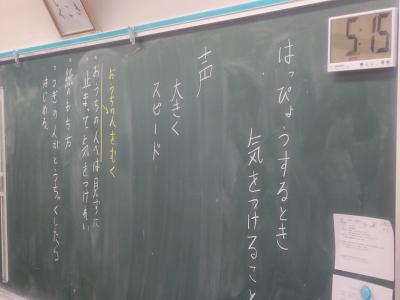 はっぴょうするとき
気をつけること
声
大きく
スピード
おうちの人をむく
・おうちの人へは見ずに
・止まって気をつけ、礼
・紙のもち方
・つぎの人がとうちゃくしたら
はじめる。
5:15